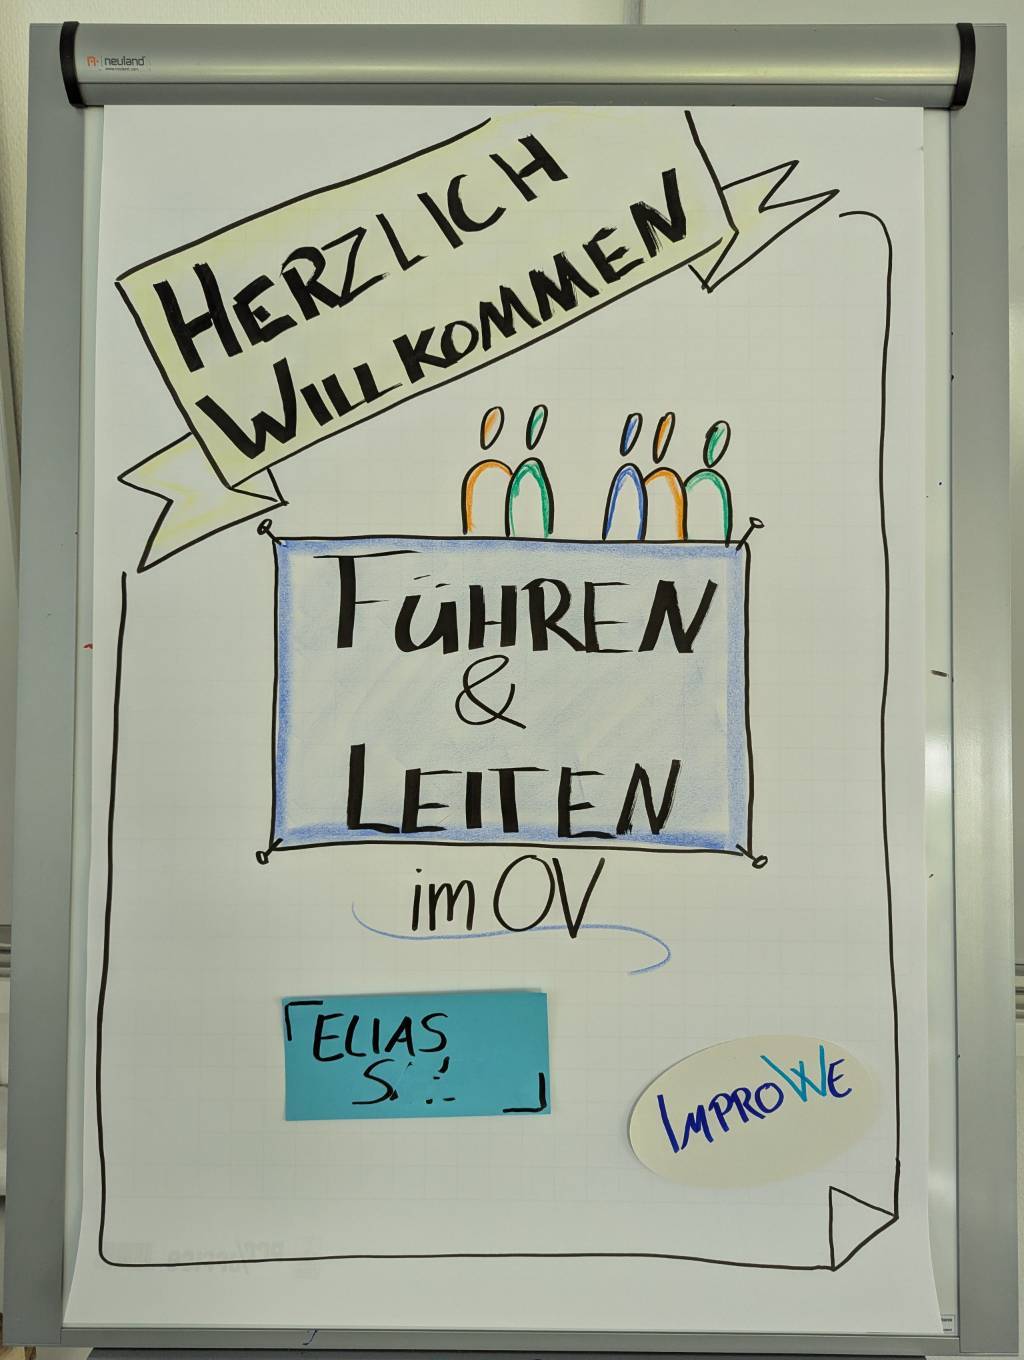 neuland
HERZLICH
WILLKOMMEN
FÜHREN
&
LEITEN
im OV
ELIAS
IMPROWE